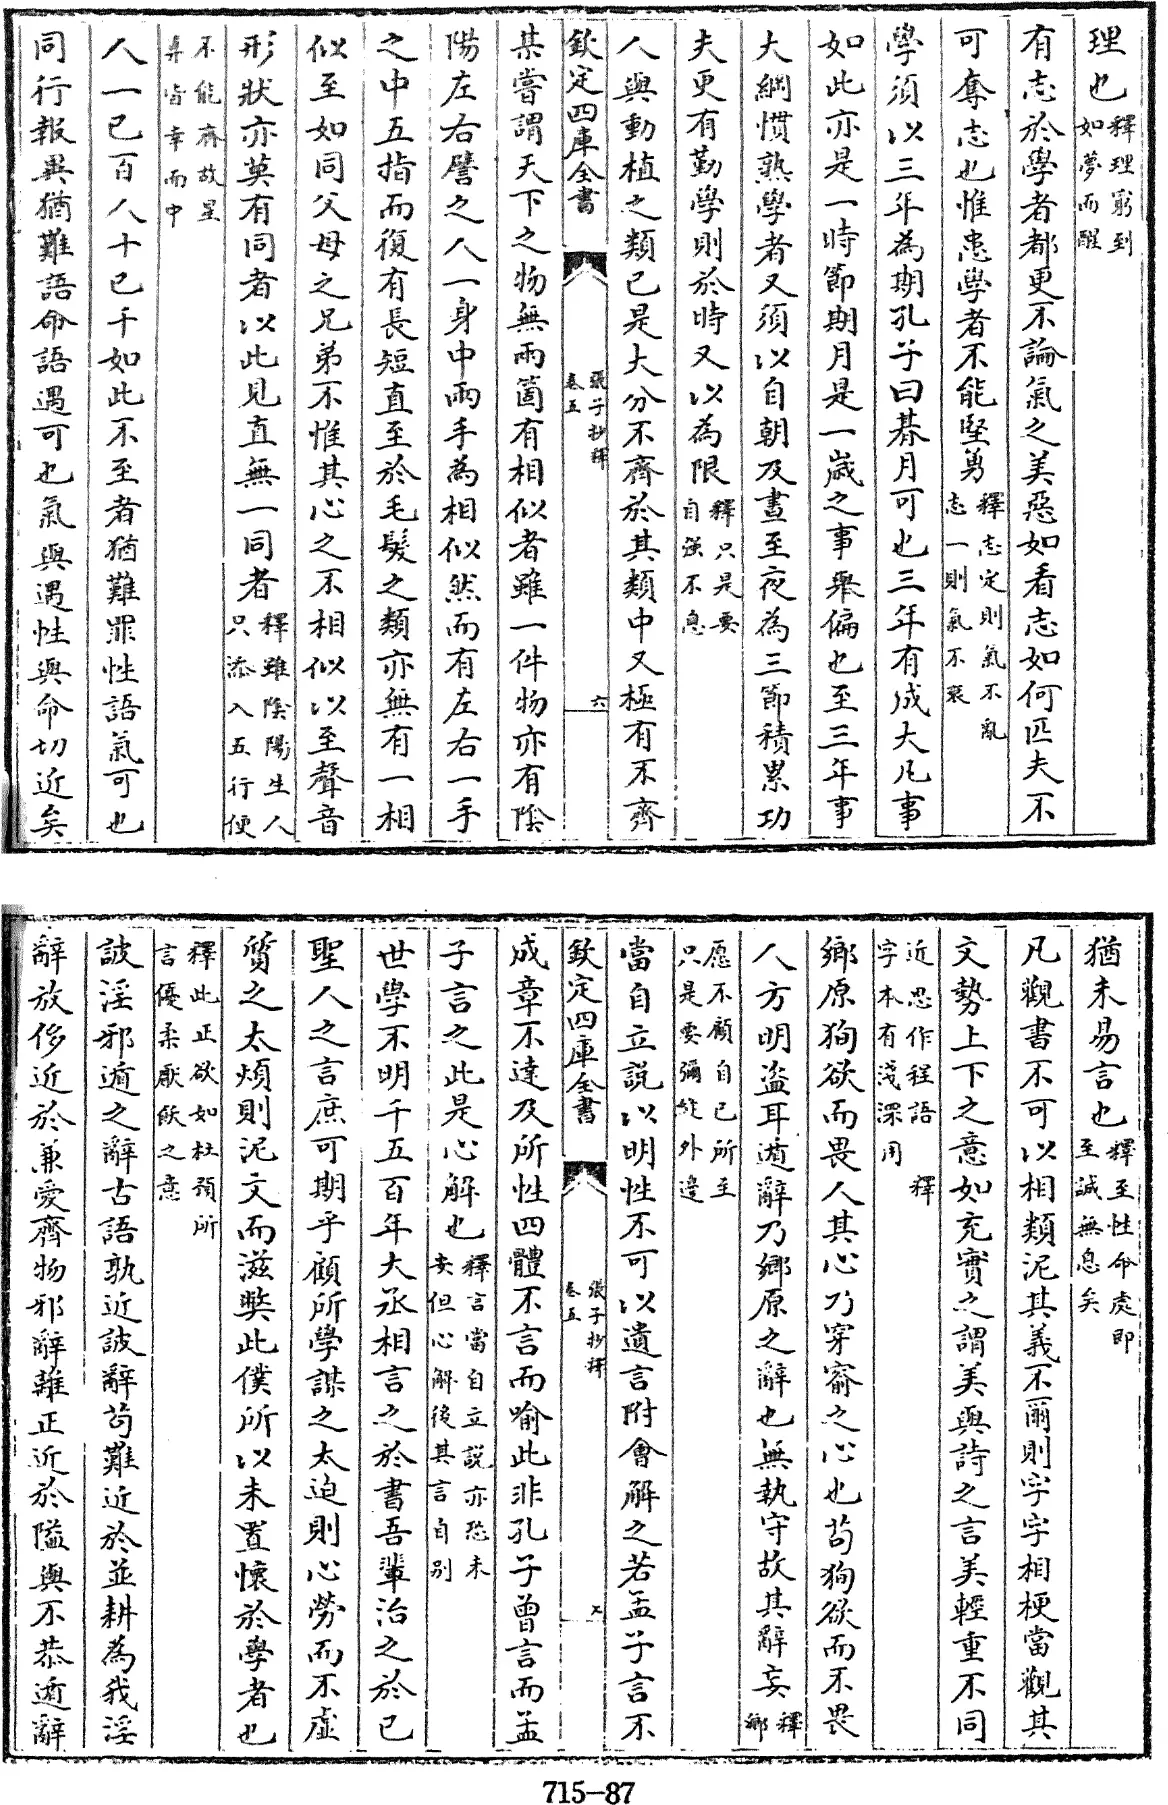 理也釋理窮到如夢而醒
有志於學者都更不論氣之美惡如看志如何匹夫不
可奪志也惟患學者不能堅勇釋志定則氣不亂志一則氣不衰
學須以三年為期孔子曰朞月可也三年有成大凡事
如此亦是一時節期月是一歲之事舉偏也至三年事
大綱慣熟學者又須以自朝及晝至夜為三節積累功
夫更有勤學則於時又以為限釋只是要自强不息
人與動植之類已是大分不齊於其類中又極有不齊
欽定四庫全書 張子抄釋卷五 六
某嘗謂天下之物無兩箇有相似者雖一件物亦有陰
陽左右譬之人一身中兩手為相似然而有左右一手
之中五指而復有長短直至於毛髮之類亦無有一相
似至如同父母之兄弟不惟其心之不相似以至聲音
形狀亦莫有同者以此見直無一同者釋雖陰陽生人只添入五行便
不能齊故星算皆幸而中
人一己百人十己千如此不至者猶難罪性語氣可也
同行報異猶難語命語遇可也氣與遇性與命切近矣
猶未易言也釋至性命處即至誠無息矣
凡觀書不可以相類泥其義不爾則字字相梗當觀其
文勢上下之意如充實之謂美與詩之言美輕重不同
近思作程語 釋字本有淺深用
鄉原狥欲而畏人其心乃穿窬之心也苟狥欲而不畏
人方明盜耳遁辭乃鄉原之辭也無執守故其辭妄釋鄉
愿不顧自己所至只是要彌縫外邊
當自立說以明性不可以遺言附會解之若孟子言不
欽定四庫全書 張子抄釋卷五
成章不達及所性四體不言而喻此非孔子曾言而孟
子言之此是心解也釋言當自立說亦恐未妥但心解後其言自别
世學不明千五百年大丞相言之於書吾輩治之於己
聖人之言庶可期乎顧所學謀之太迫則心勞而不虛
質之太煩則泥文而滋弊此僕所以未置懷於學者也
釋此正欲如杜預所言優柔厭飫之意
詖淫邪遁之辭古語孰近詖辭苟難近於並耕為我淫
辭放侈近於兼愛齊物邪辭離正近於隘與不恭遁辭
715-87